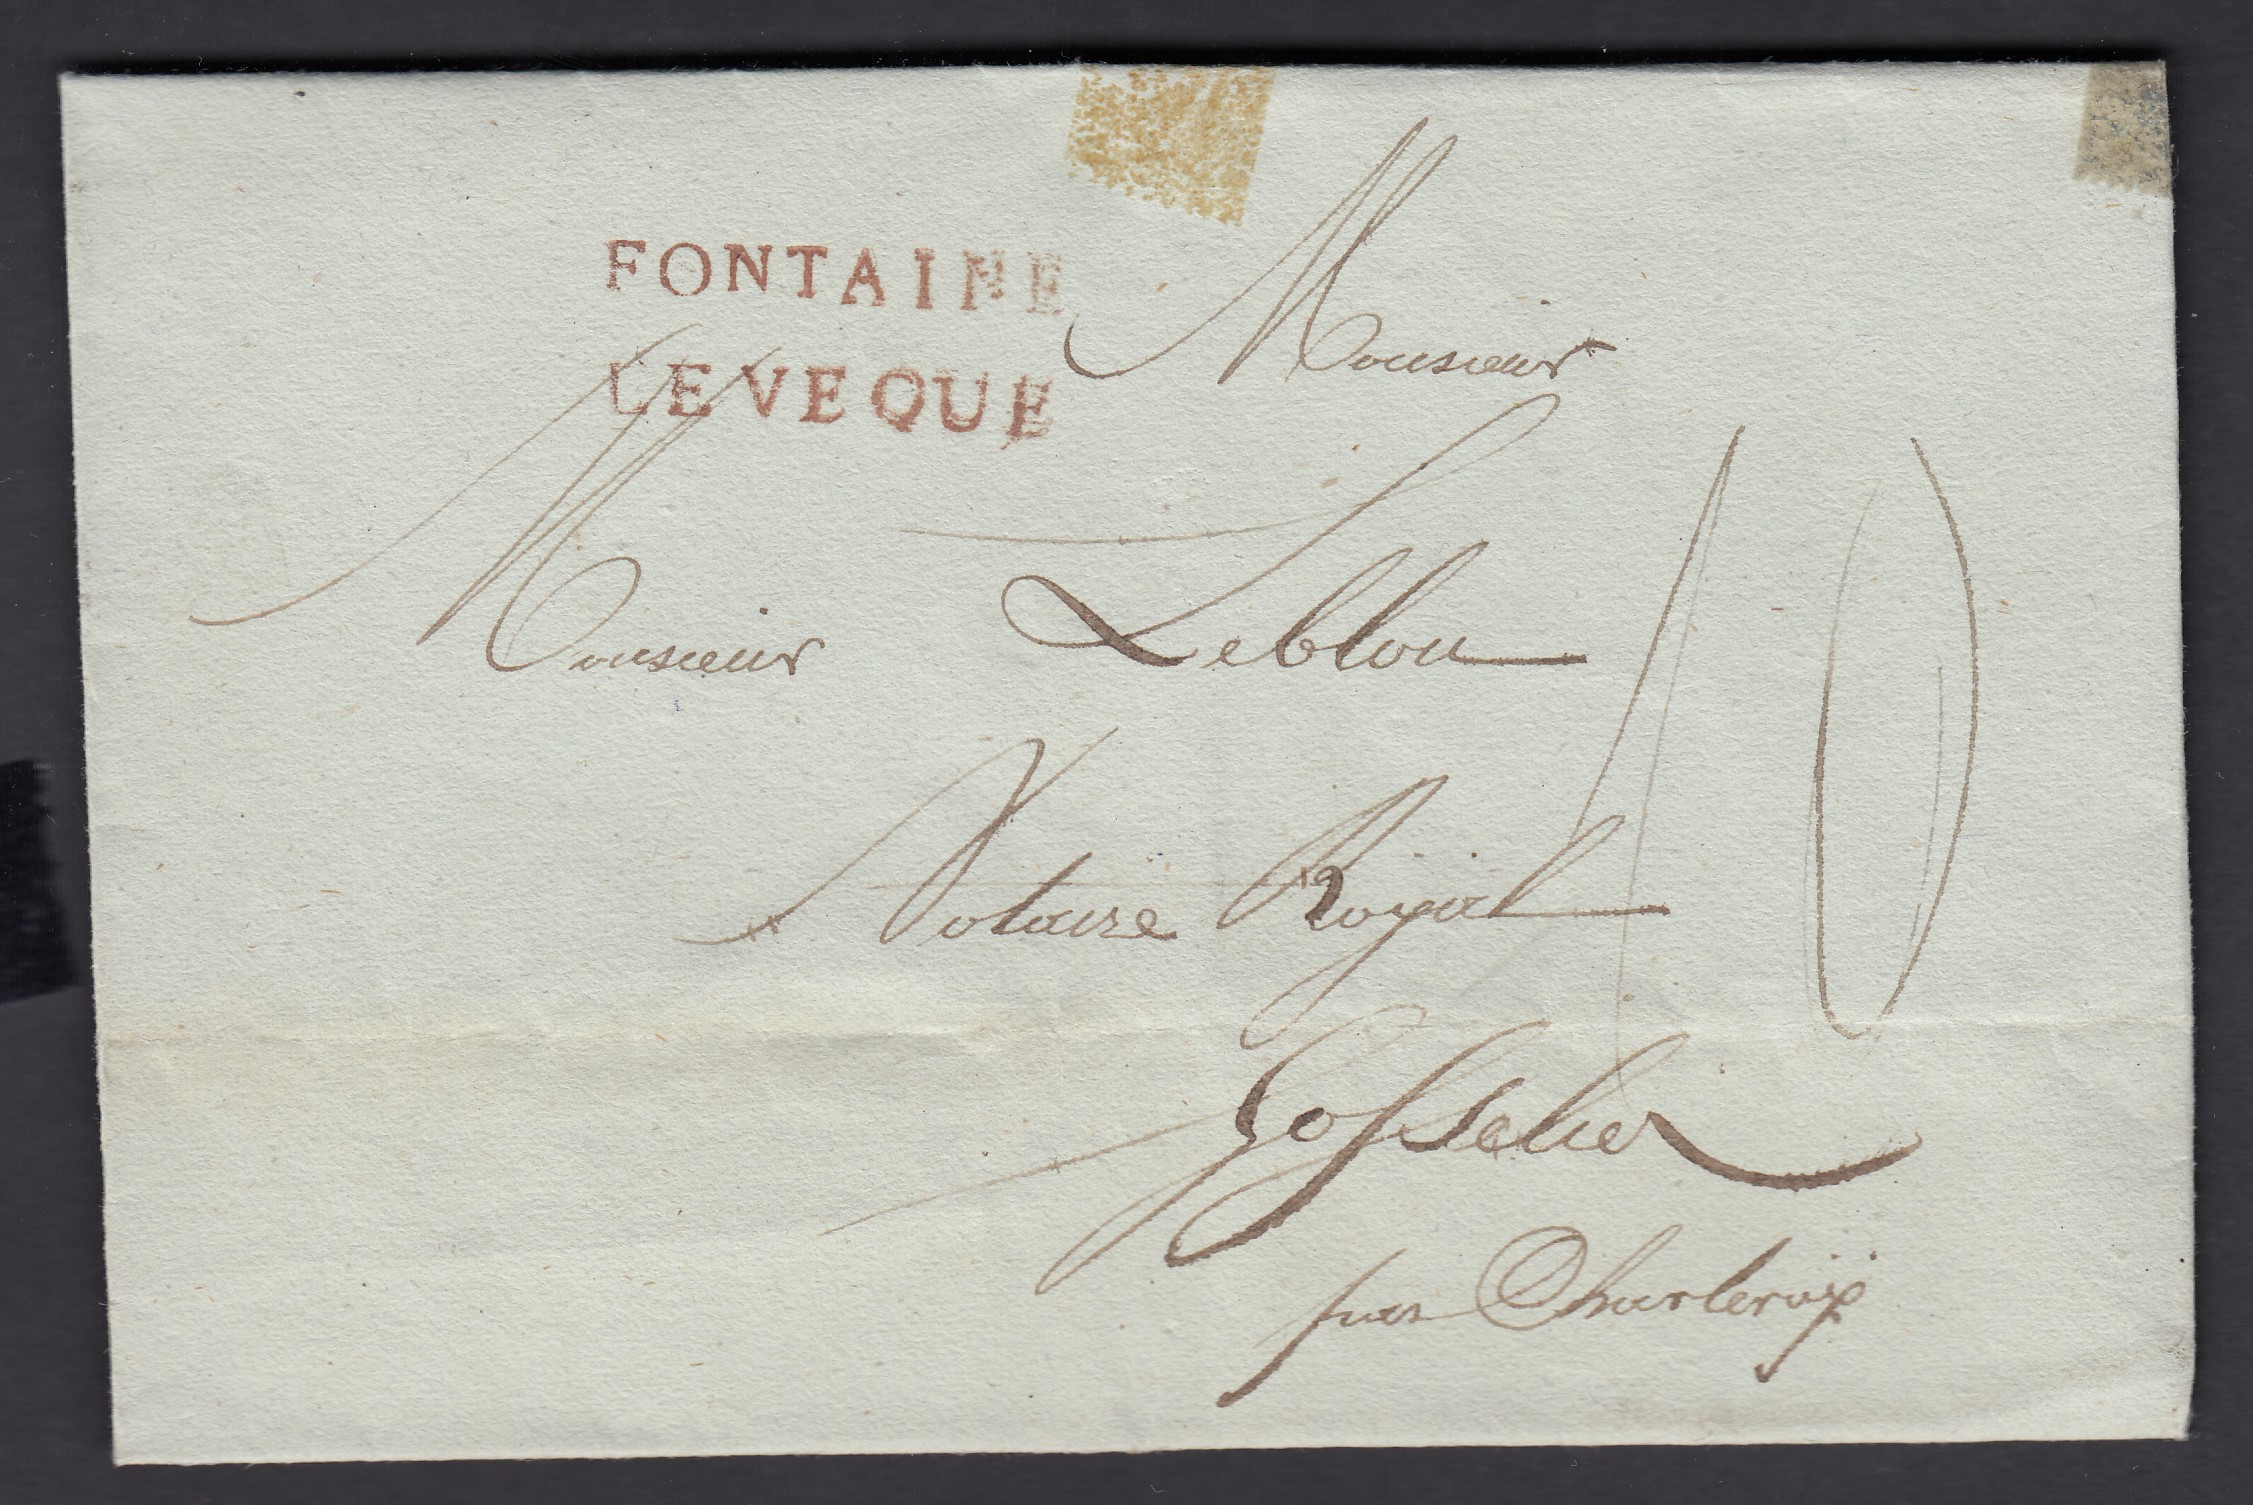 FONTAINE
LEVEQUE
Monsieur
Monsieur Leblou
Notaire Royal
Gosselies
par Charleroÿ
10